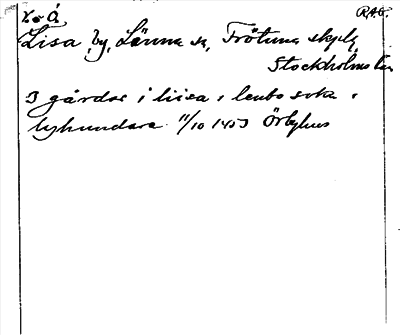 R.A.G.
Lisa by, Länna sn, Frötuna skepl.
Stockholms län
3 gårdar i liisa i lenbo sokn i
lyhundara 11/10 1453 Örbyhus